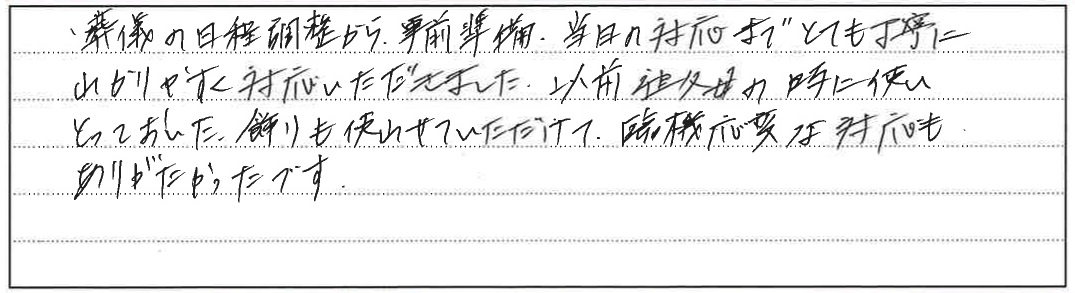 ・葬儀の日程調整から、事前準備、当日の対応までとても丁寧に
わかりやすく対応いただきました。以前祖父母の時に使い
とっておいた、飾りも使わせていただけて、臨機応変な対応も
ありがたかったです。